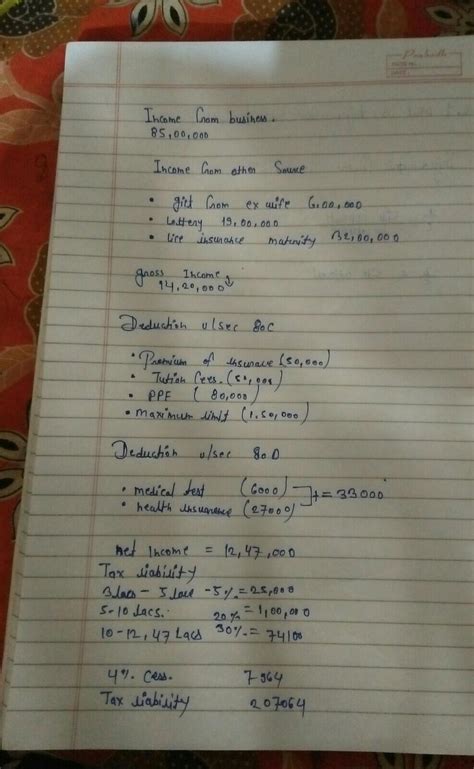 PAGE No.
DATE
Income from business.
85,00,000
Income from other Source
• gift from ex wife 6,00,000
• Lottery 19,00,000
• life insurance maturity 32,00,000
gross Income
14,20,000
Deduction u/sec 80C
• Premium of insurance (50,000)
• Tution fees. (50,000)
• PPF ( 80,000)
• maximum limit (1.50,000)
Deduction u/sec 80D
• medical test (6000)
• health insurance (27000) += 33000
net Income = 12,47,000
Tax liability
3lacs - 5 lace -5%.=25,000
5-10 Lacs. 20%=1,00,000
10-12,47 Lacs 30%.= 74100
4%. Cess. 7964
Tax liability 207064